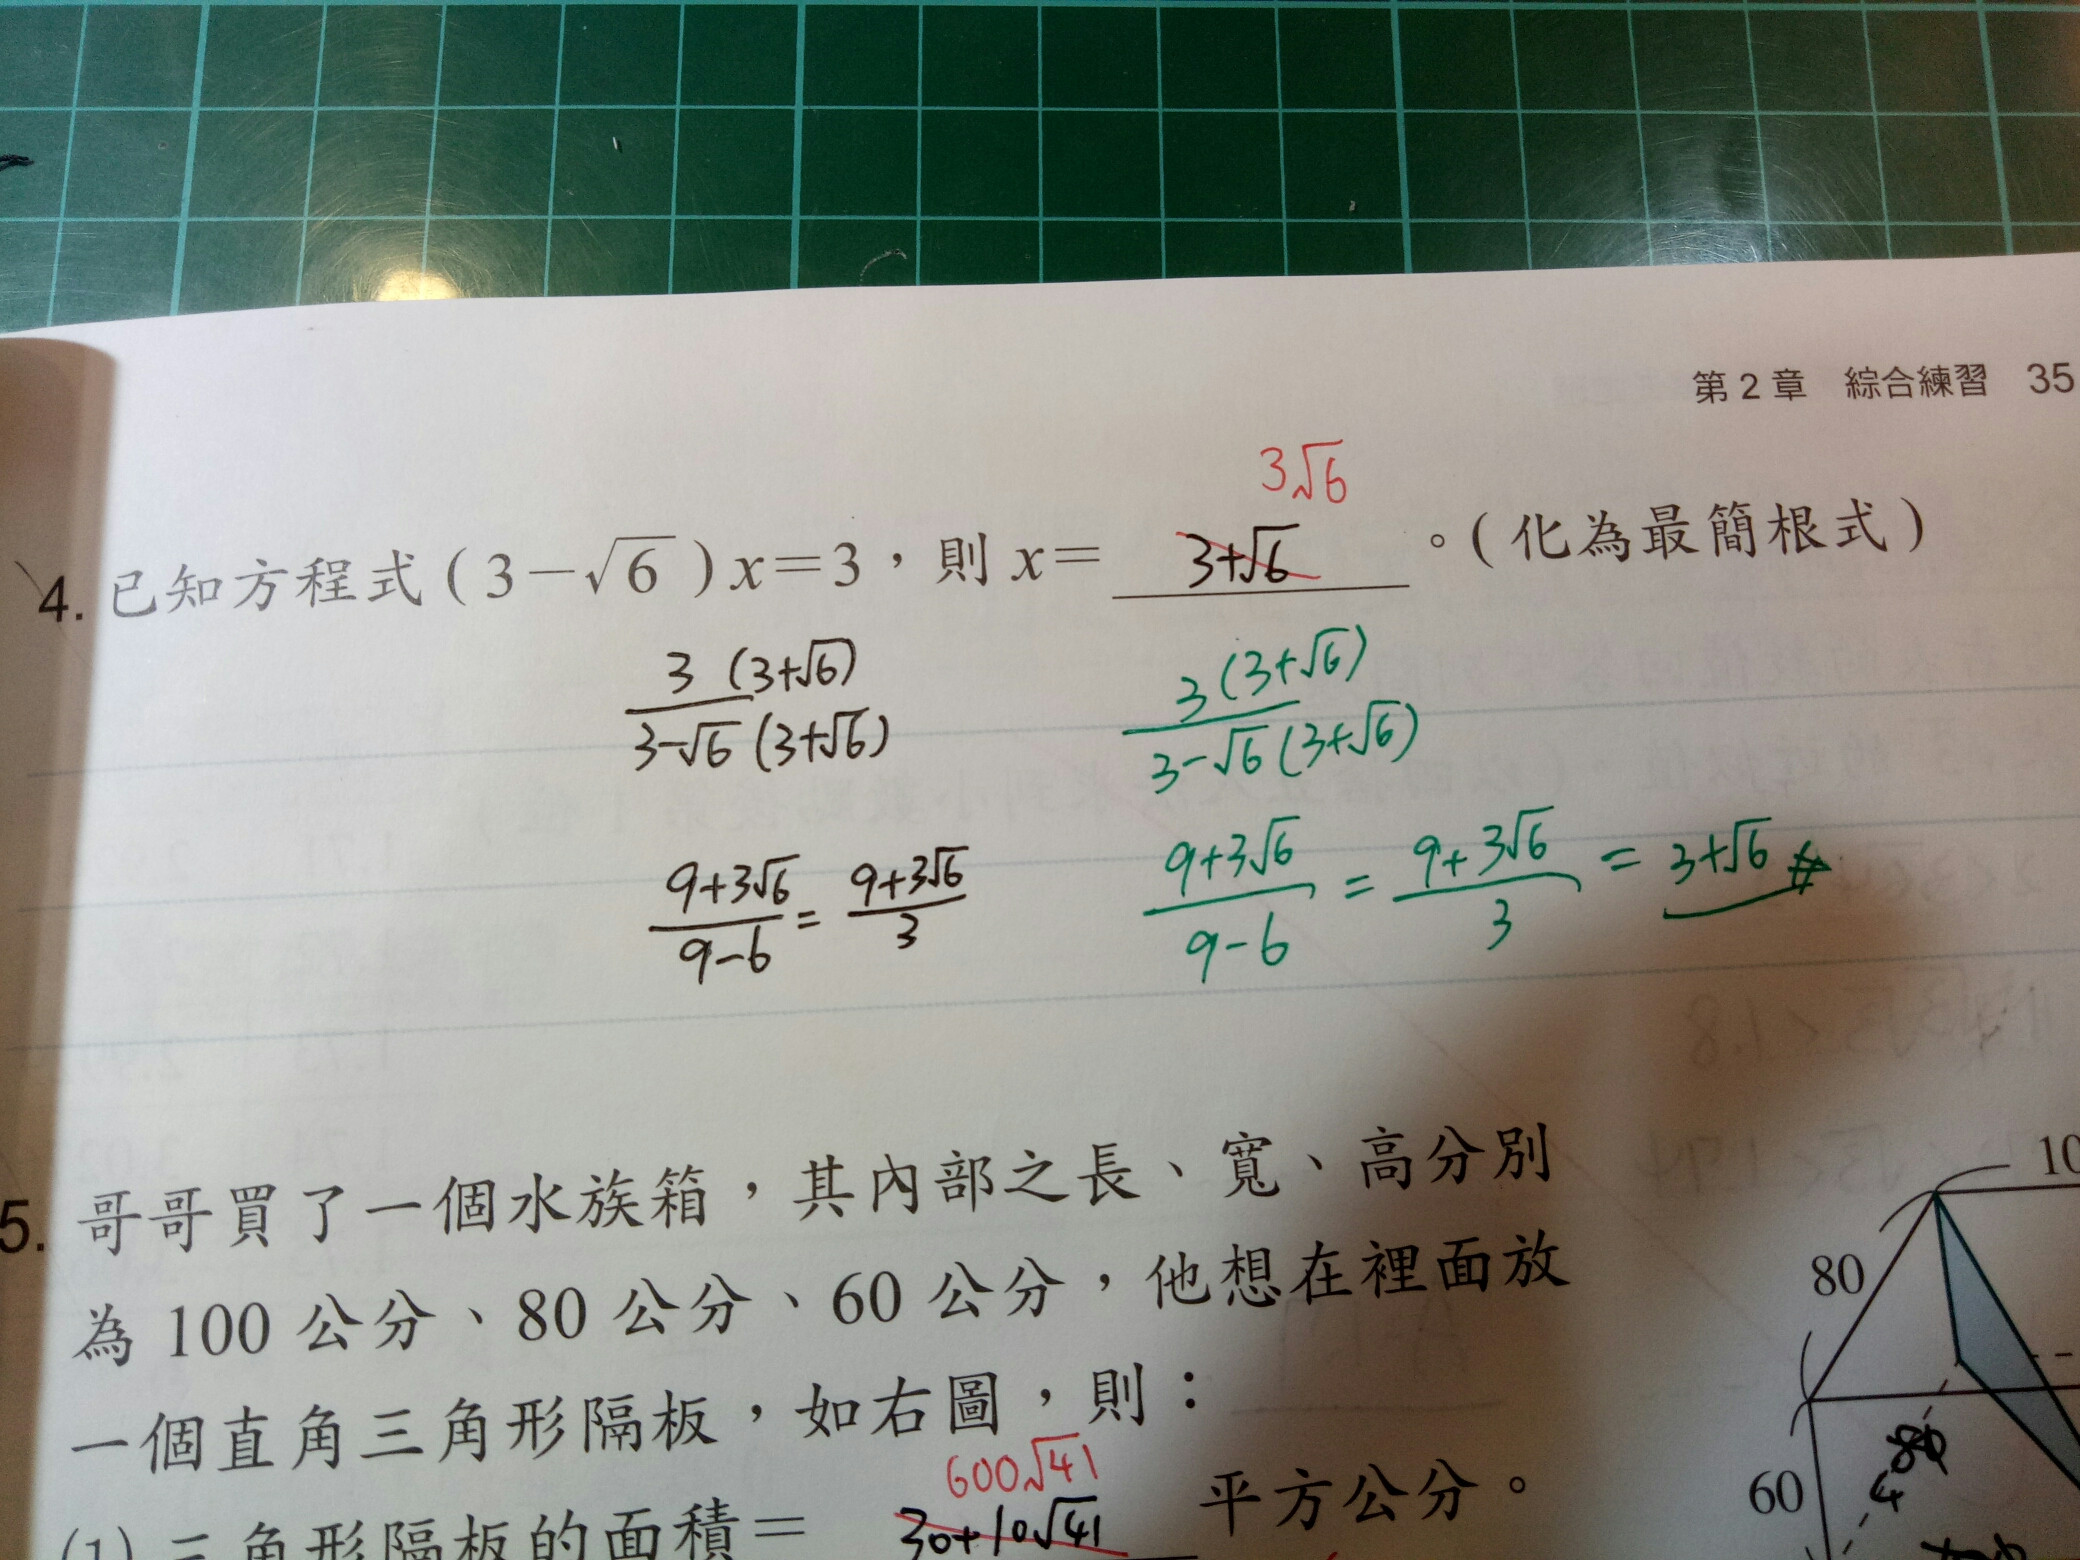 第2章 綜合練習 35
3√6
4. 已知方程式(3-√6)x=3,則 x= 3+√6 。(化為最簡根式)
3 (3+√6)
3-√6 (3+√6)
9+3√6 = 9+3√6
9-6 3
3 (3+√6)
3-√6 (3+√6)
9+3√6 = 9+3√6 = 3+√6 #
9-6 3
5. 哥哥買了一個水族箱,其內部之長、寬、高分別
為 100 公分、80 公分、60 公分,他想在裡面放
一個直角三角形隔板,如右圖,則:
600√41
(1) 三角形隔板的面積= 30+10√41 平方公分。
10
80
60